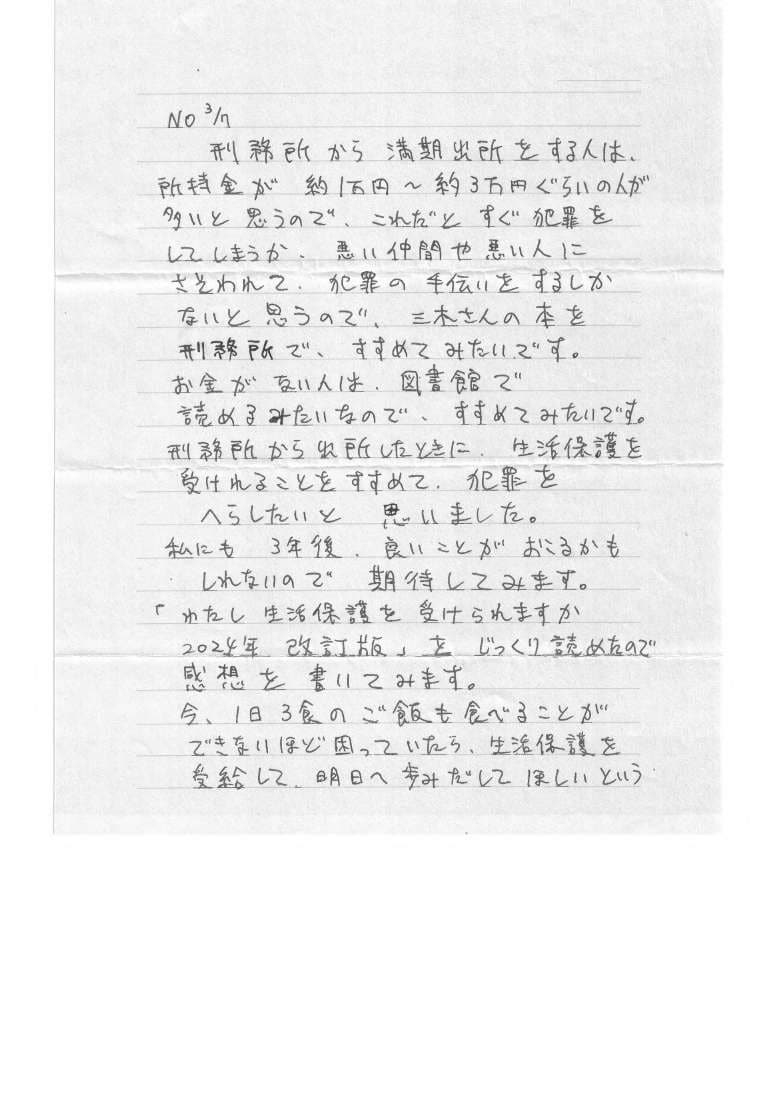 NO 3/7
刑務所から満期出所をする人は、
所持金が 約1万円〜約3万円ぐらいの人が
多いと思うので、これだとすぐ犯罪を
してしまうか、悪い仲間や悪い人に
さそわれて、犯罪の手伝いをするしか
ないと思うので、三木さんの本を
刑務所で、すすめてみたいです。
お金がない人は、図書館で
読めるみたいなので、すすめてみたいです。
刑務所から出所したときに、生活保護を
受けれることをすすめて、犯罪を
へらしたいと 思いました。
私にも 3年後、良いことがおこるかも
しれないので 期待してみます。
「わたし生活保護を受けられますか
2024年 改訂版」を じっくり読めたので
感想を書いてみます。
今、1日3食のご飯も食べることが
できないほど困っていたら、生活保護を
受給して、明日へ歩みだしてほしいという